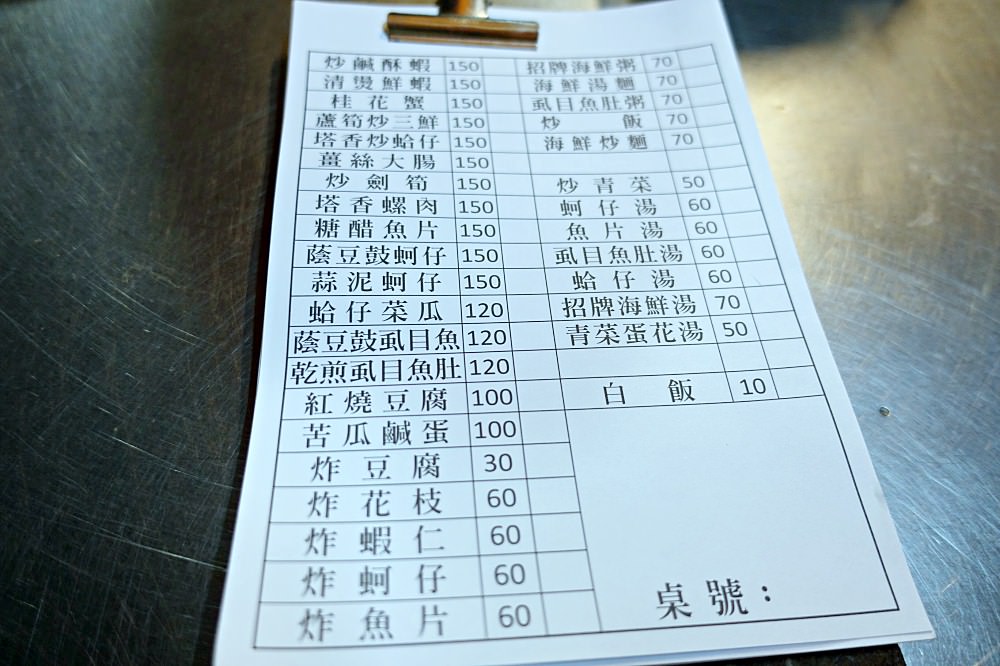 炒鹹酥蝦 150 招牌海鮮粥 70
清燙鮮蝦 150 海鮮湯麵 70
桂花蟹 150 虱目魚肚粥 70
蘆筍炒三鮮 150 炒飯 70
塔香炒蛤仔 150 海鮮炒麵 70
薑絲大腸 150
炒劍筍 150 炒青菜 50
塔香螺肉 150 蚵仔湯 60
糖醋魚片 150 魚片湯 60
蔭豆鼓蚵仔 150 虱目魚肚湯 60
蒜泥蚵仔 150 蛤仔湯 60
蛤仔菜瓜 120 招牌海鮮湯 70
蔭豆鼓虱目魚 120 青菜蛋花湯 50
乾煎虱目魚肚 120
紅燒豆腐 100 白飯 10
苦瓜鹹蛋 100
炸豆腐 30
炸花枝 60
炸蝦仁 60
炸蚵仔 60
炸魚片 60
桌號：